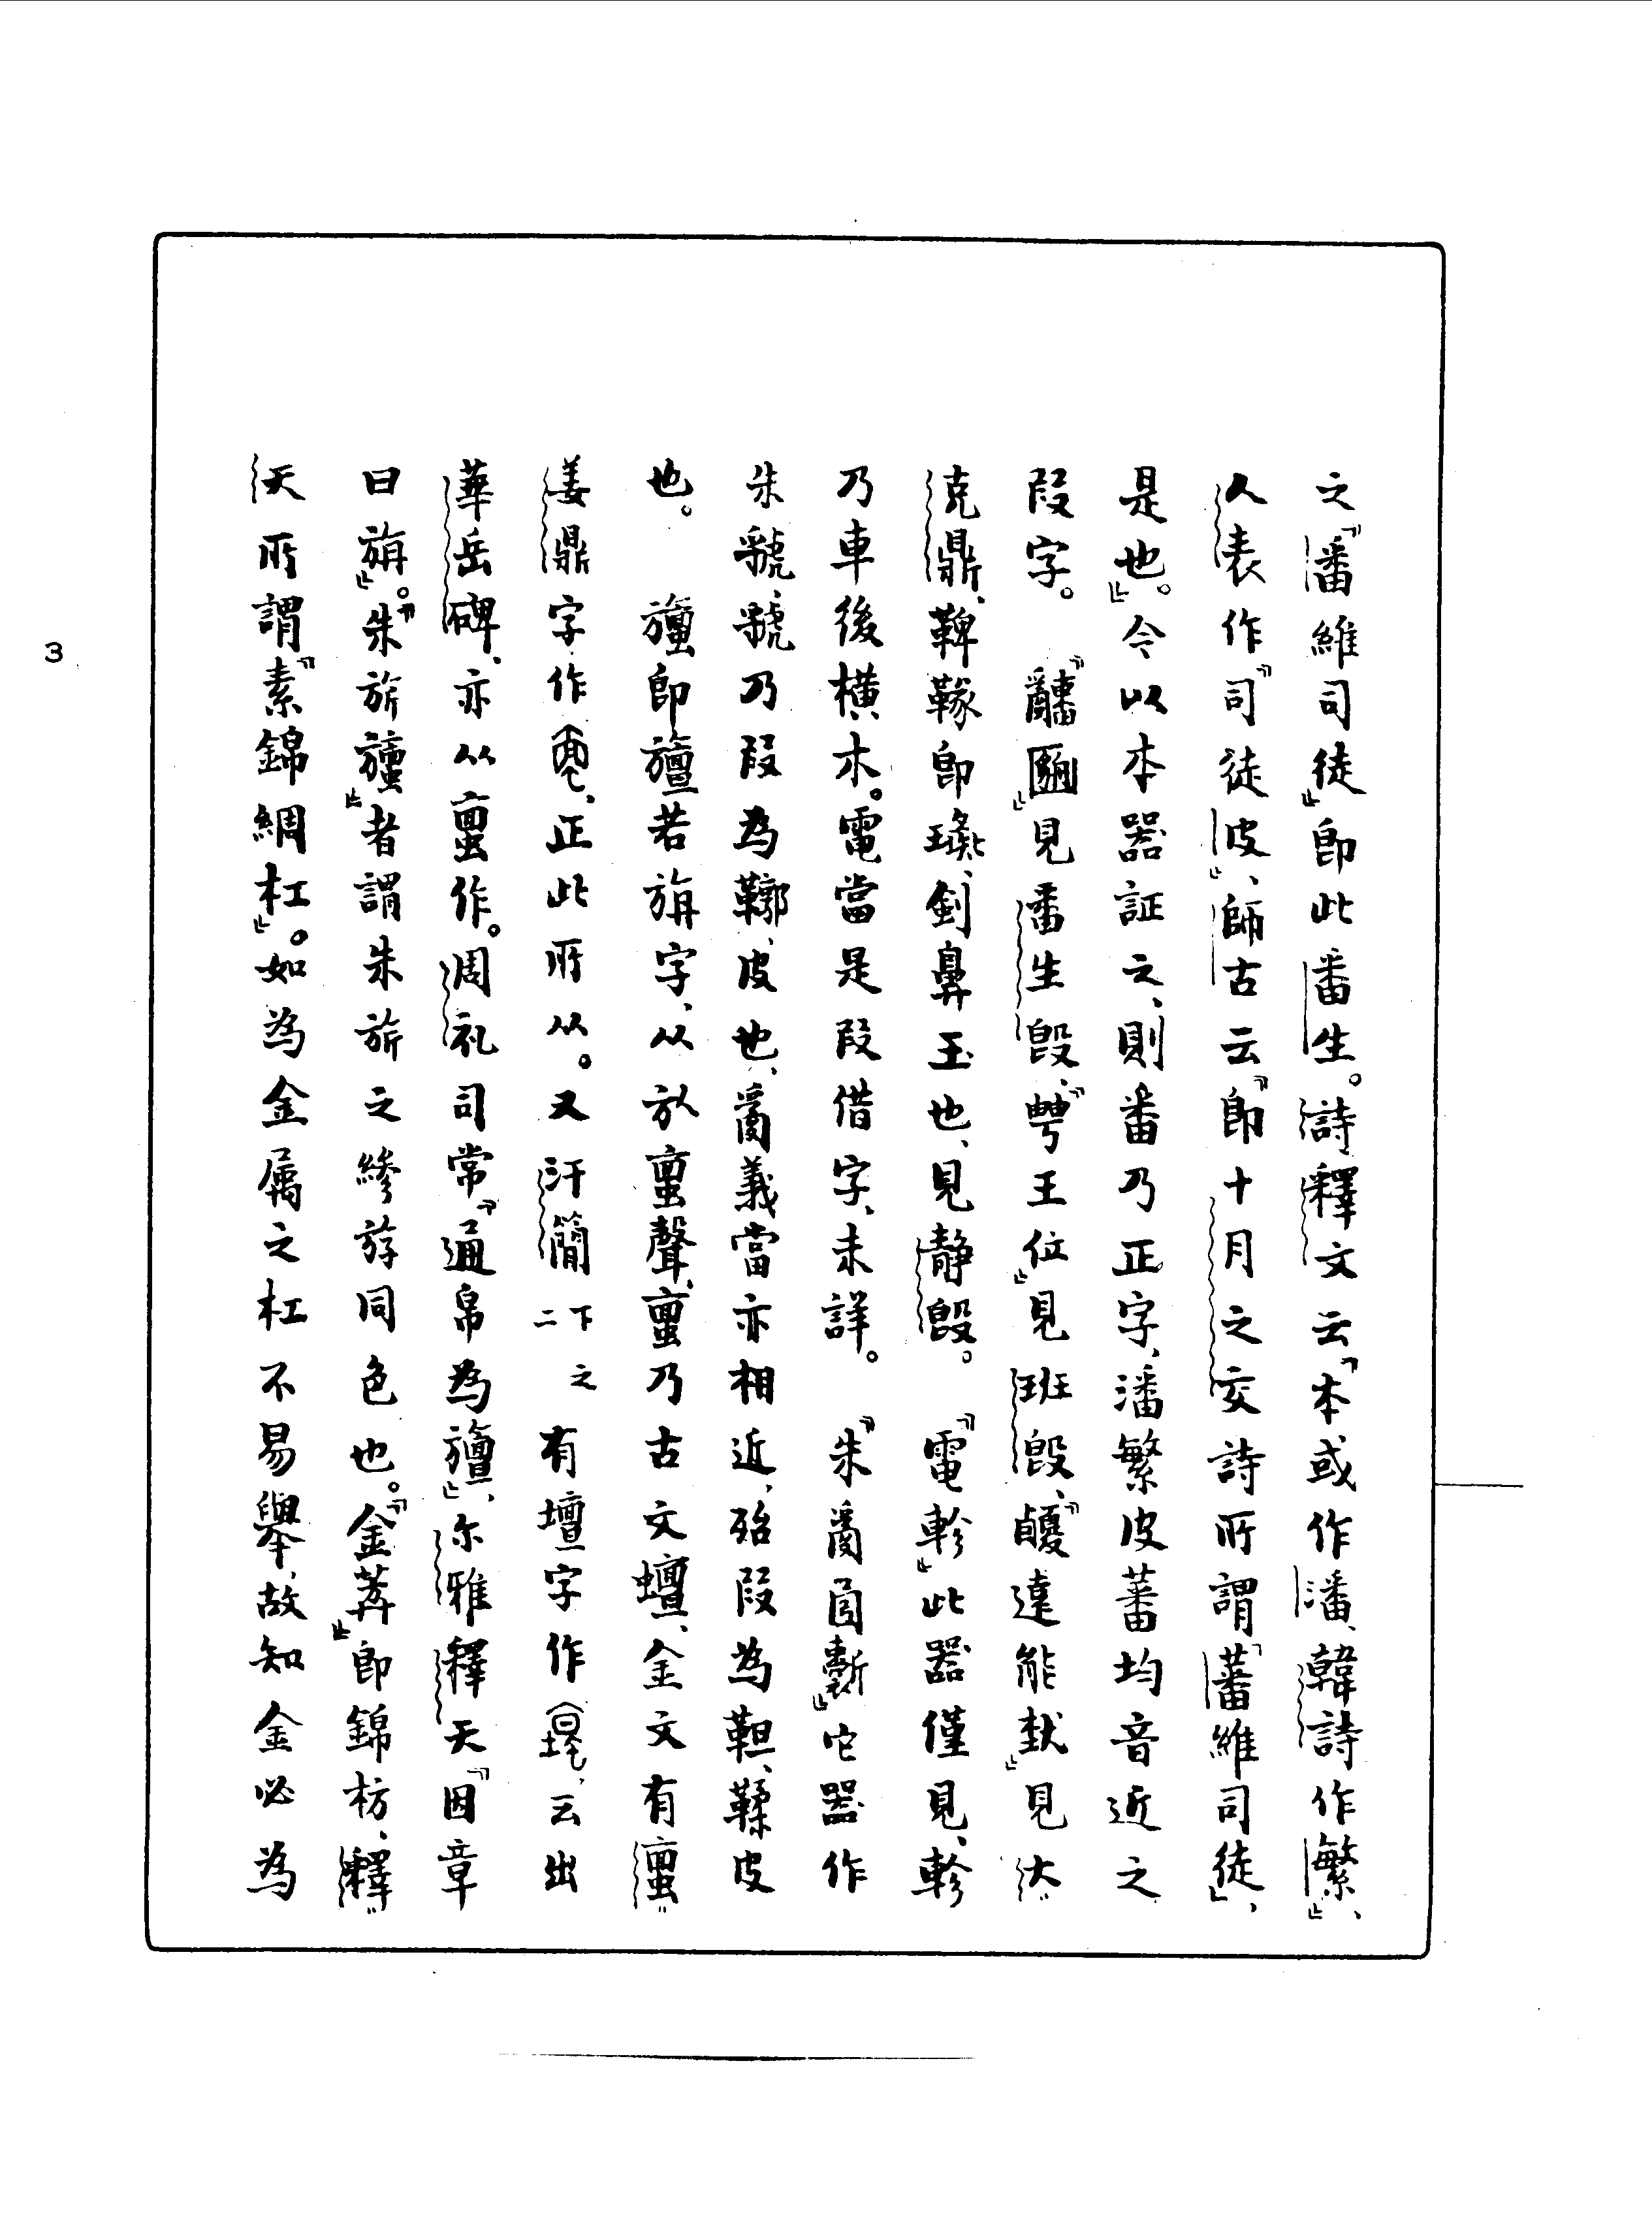 之『番維司徒』即此番生。詩釋文云「本或作潘、韓詩作繁」、
人表作『司徒皮』、師古云『即十月之交詩所謂「蕃維司徒」、
是也。』今以本器証之、則番乃正字、潘繁皮蕃均音近之
叚字。 『𤔲』見番生𣪘、『甹王位』見班𣪘、『䪻遠能㹜』見大
克鼎、鞞鞣即璲、劍鼻玉也、見静𣪘。 『電軫』此器僅見、軫
乃車後橫木。電當是叚借字、未詳。 『朱䚄㔶䡅』它器作
朱虢、虢乃叚為鞹、皮也、䚄義當亦相近、殆叚為靼、鞣皮
也。 旜即旜若旃字、从㫃亶聲、亶乃古文蟺、金文有亶
姜鼎字作 、正此所从。又汗簡下之二有壇字作 、云出
華岳碑、亦从亶作。周礼司常『通帛為旜』、尔雅釋天『因章
曰旃』。『朱旂旜』者謂朱旂之縿斿同色也。『金葊』即錦枋、釋
天所謂『素錦綢杠』。如為金属之杠不易舉、故知金必為
3